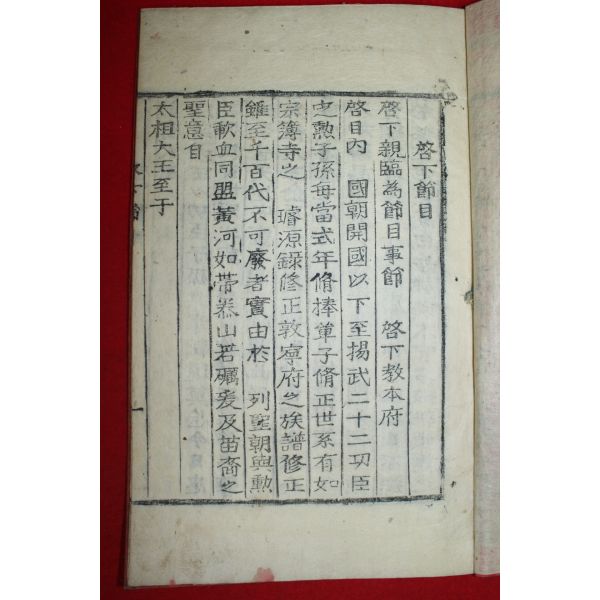 啓下節目
啓下親臨為節目事節 啓下教本府
啓目內 國朝開國以下至揚武二十二功臣
之勲子孫每當式年脩捧單子脩正世系有如
宗簿寺之 璿源錄修正敦寧府之族譜修正
雖至千百代不可廢者實由於 列聖朝與勲
臣歃血同盟黃河如帶泰山若礪爰及苗裔之
聖意自
太祖大王至于
一